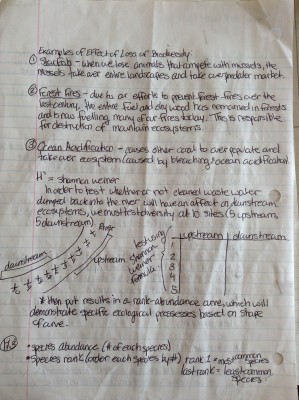 Examples of Effect of Loss of Biodiversity:
① Starfish - when we lose animals that compete with mussels, the
mussels take over entire landscapes and take over predator market.
② Forest Fires - due to our efforts to prevent forest fires over the
last century, the entire fuel and dry wood has remained in forests
and is now fuelling many of our fires today. This is responsible
for destruction of mountain ecosystems.
③ Ocean Acidification - causes other coral to overpopulate and
take over ecosystem (caused by bleaching + ocean acidification)
H' = shannon weiner
In order to test whether or not cleaned waste water
dumped back into the river will have an affect on downstream
ecosystems, we must test diversity at 10 sites (5 upstream,
5 downstream)
River
downstream
upstream
test using
shannon
weiner
formula
upstream downstream
2
3
4
5
* then put results in a rank-abundance curve, which will
demonstrate specific ecological processes based on shape
of curve.
• species abundance (# of each species)
• species rank (order each species by #) rank 1 = most common species
last rank = least common
species